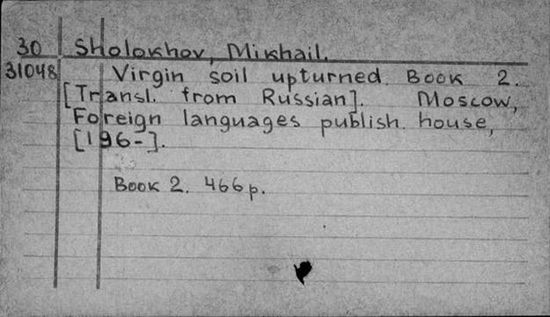 30 Sholokhov, Mikhail.
31048 Virgin soil upturned. Book 2.
[Transl. from Russian]. Moscow,
Foreign languages publish. house,
[196-].
Book 2. 466p.